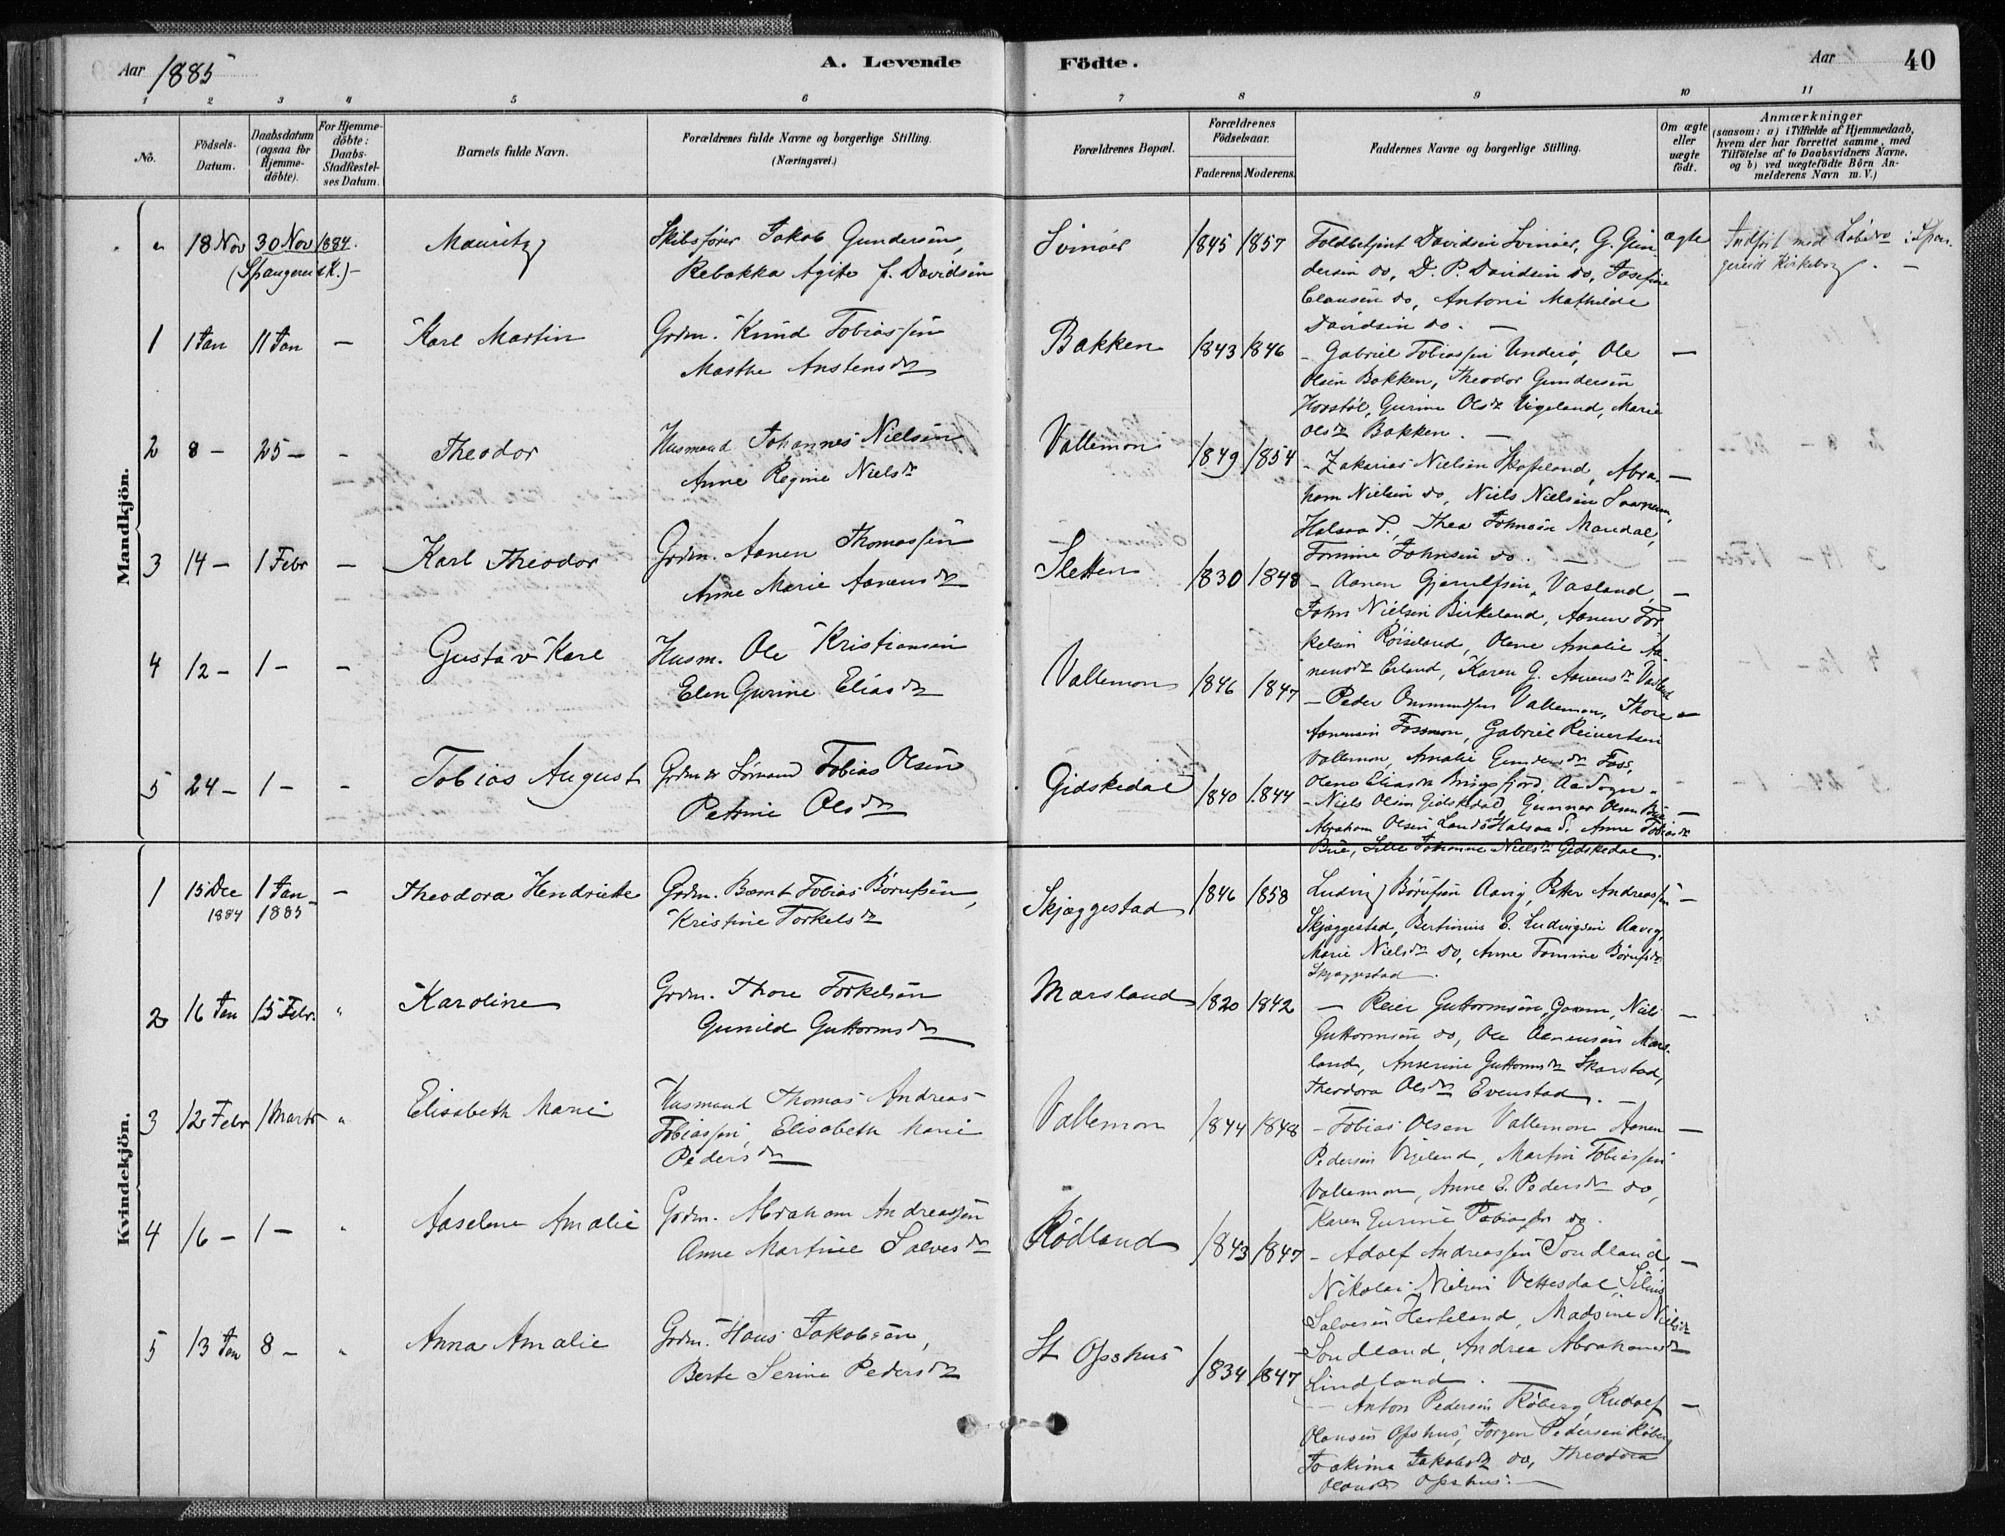 Aar 1885
A. Levende Födte.
Aar
40
1 2 3 4 5 6 7 8 9 10 11
No.
Födsels-Datum.
Daabsdatum (ogsaa for Hjemme-döbte).
For Hjemme-döbte: Daabs-Stadfæstel-ses Datum.
Barnets fulde Navn.
Forældrenes fulde Navne og borgerlige Stilling.
(Næringsvei.)
Forældrenes Bopæl.
Forældrenes Födselsaar.
Faderens Moderens
Faddernes Navne og borgerlige Stilling.
Om ægte eller uægte födt.
Anmærkninger
(saasom: a) i Tilfælde af Hjemmedaab,
hvem der har forrettet samme, med
Tilföielse af to Daabsvidners Navne.
og b) ved uægtefödte Börn An-
melderens Navn m. V.)
Mandkjön.
" 18 Nov 30 Nov 1884. Mauritz Skibsfører Jakob Gundersen, Svinøer 1845 1857 Toldbetjent Davidsen Svinøer, G. Gun- ægte Indført med Løbe No i Span-
(Spangereid K.) Rebekka Agite f. Davidsen dersen do, D. P. Davidsen do, Josefine gereid Kirkebog. —
Clausen do, Antoni Mathilde
Davidsen do. —
1 1 Jan 11 Jan — Karl Martin Grdm. Knud Tobiassen Bakken 1843 1846 - Gabriel Tobiassen Underö, Ole —
Marthe Anstensdr Olsen Bakken, Theodor Gundersen
Gurine Olsdr Vigeland, Marie
Olsdr Bakken. —
2 8 — 25 — - Theodor Husmand Johannes Nielsen Vallemon 1849 1854 - Zakarias Nielsen Skofteland, Abra- —
Anne Regine Nielsdr ham Nielsen do, Niels Nielsen
Halsaa S., Thea Johnsen Mandal,
Tomine Johnsen do. —
3 14 — 1 Febr — Karl Theodor Grdm. Aanen Thomassen Sletten 1830 1848 - Aanen Gjerulfsen, Vasland, —
Anne Marie Aanensdr John Nielsen Birkeland, Aanen Tor-
kelsen Röiseland, Olene Amalie Aa-
nensdr Erland, Karen G. Aanensdr Vasland
4 12 — 1 — - Gustav Karl Husm. Ole Kristiansen Vallemon 1846 1847 - Peder Ommundsen Vallemon, Thore —
Elen Gurine Eliasdr Aanensen Fossmon, Gabriel Reiertsen
Vallemon, Amalie Gundersdr Foss,
Olene Eliasdr Aa Sogn.
5 24 — 1 — - Tobias August Grdm. Tobias Olsen Gidskedal 1840 1844 - Niels Olsen Gidskedal, Gunnar Olsen —
Petrine Olsdr Abraham Olsen Halsaa S. Anne Tobiasdr
Johanne Nielsdr Gidskedal.
Kvindekjön.
1 15 Dec 1 Jan — Theodora Hendrikke Grdm. Bernt Tobias Børufsen, Skjæggestad 1846 1858 Ludvig Børufsen Aavig, Petter Andreassen —
1884 1885 Kristine Torkelsdr Skjæggestad, Bertinius E. Ludvigsen Aavig,
Marie Nielsdr do, Anne Tomine Børufsdr
Skjæggestad.
2 16 Jan 15 Febr. " Karoline Grdm. Thore Torkelsen Marsland 1820 1842 — Reier Guttormsen Niels —
Gunild Guttormsdr Guttormsen do, Ole Aanensen Mars-
land, Anserine Guttormsdr Skarstad,
Theodora Olsdr Evenstad. —
3 12 Febr 1 Marts " Elisabeth Marie Husmand Thomas Andreas Vallemon 1844 1848 - Tobias Olsen Vallemon Aanen —
Tobiassen, Elisabeth Marie Pedersen Vigeland, Martin Tobiassen
Pedersdr Vallemon, Anne E. Pedersdr do,
Karen Gurine Tobiassen do.
4 16 — 1 — " Aaselene Amalie Grdm. Abraham Andreassen Rödland 1843 1847 - Adolf Andreassen Sondland, —
Anne Martine Salvesdr Nikolai Nielsen Vettesdal,
Salvesen Herteland, Madsine Nielsdr
Sondland, Andrea Abrahamsdr
Lindland.
5 13 Jan 8 — " Anna Amalie Grdm. Hans Jakobsen, St Ofsshus 1834 1847 - Anton Pedersen Köberg, Rudolf —
Berte Serine Pedersdr Olausen Ofsshus, Jørgen Pedersen Köberg
Joakima Jakobsdr do, Theodora
Olausdr Ofsshus. —